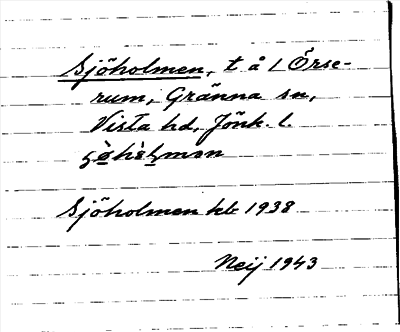 Sjöholmen, t å 1 Örse-
rum, Gränna sn,
Vista hd, Jönk. l.
Sjöholmen kb 1938
Neij 1943